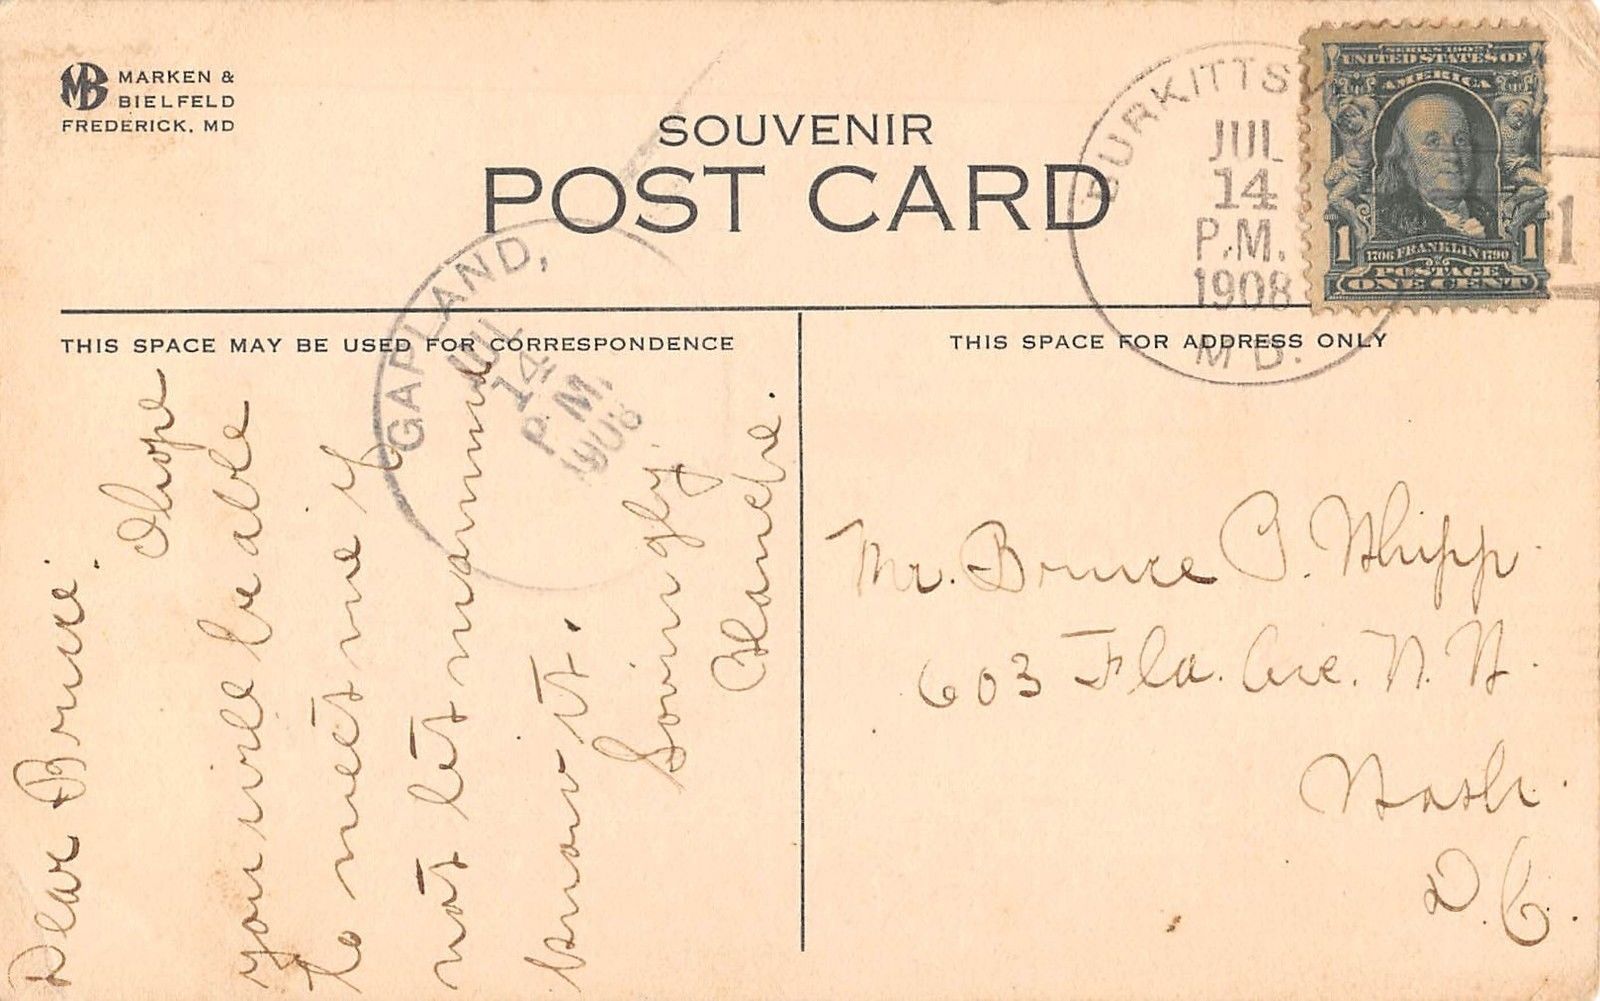 MB
MARKEN &
BIELFELD
FREDERICK, MD
SOUVENIR
POST CARD
BURKITTS
JUL
14
P.M.
1908
MD.
1
SERIES 1902
UNITED STATES OF
AMERICA
1 1706 FRANKLIN 1790 1
POSTAGE
ONE CENT
GAPLAND,
JUL
14
P.M.
1908
THIS SPACE MAY BE USED FOR CORRESPONDENCE
THIS SPACE FOR ADDRESS ONLY
Dear Bruce.
I hope
you will be able
to meet me if
not let mamma
know it.
Lovingly.
Mr. Bruce Whipp
603 Fla. Ave. N. W.
Wash.
D.C.